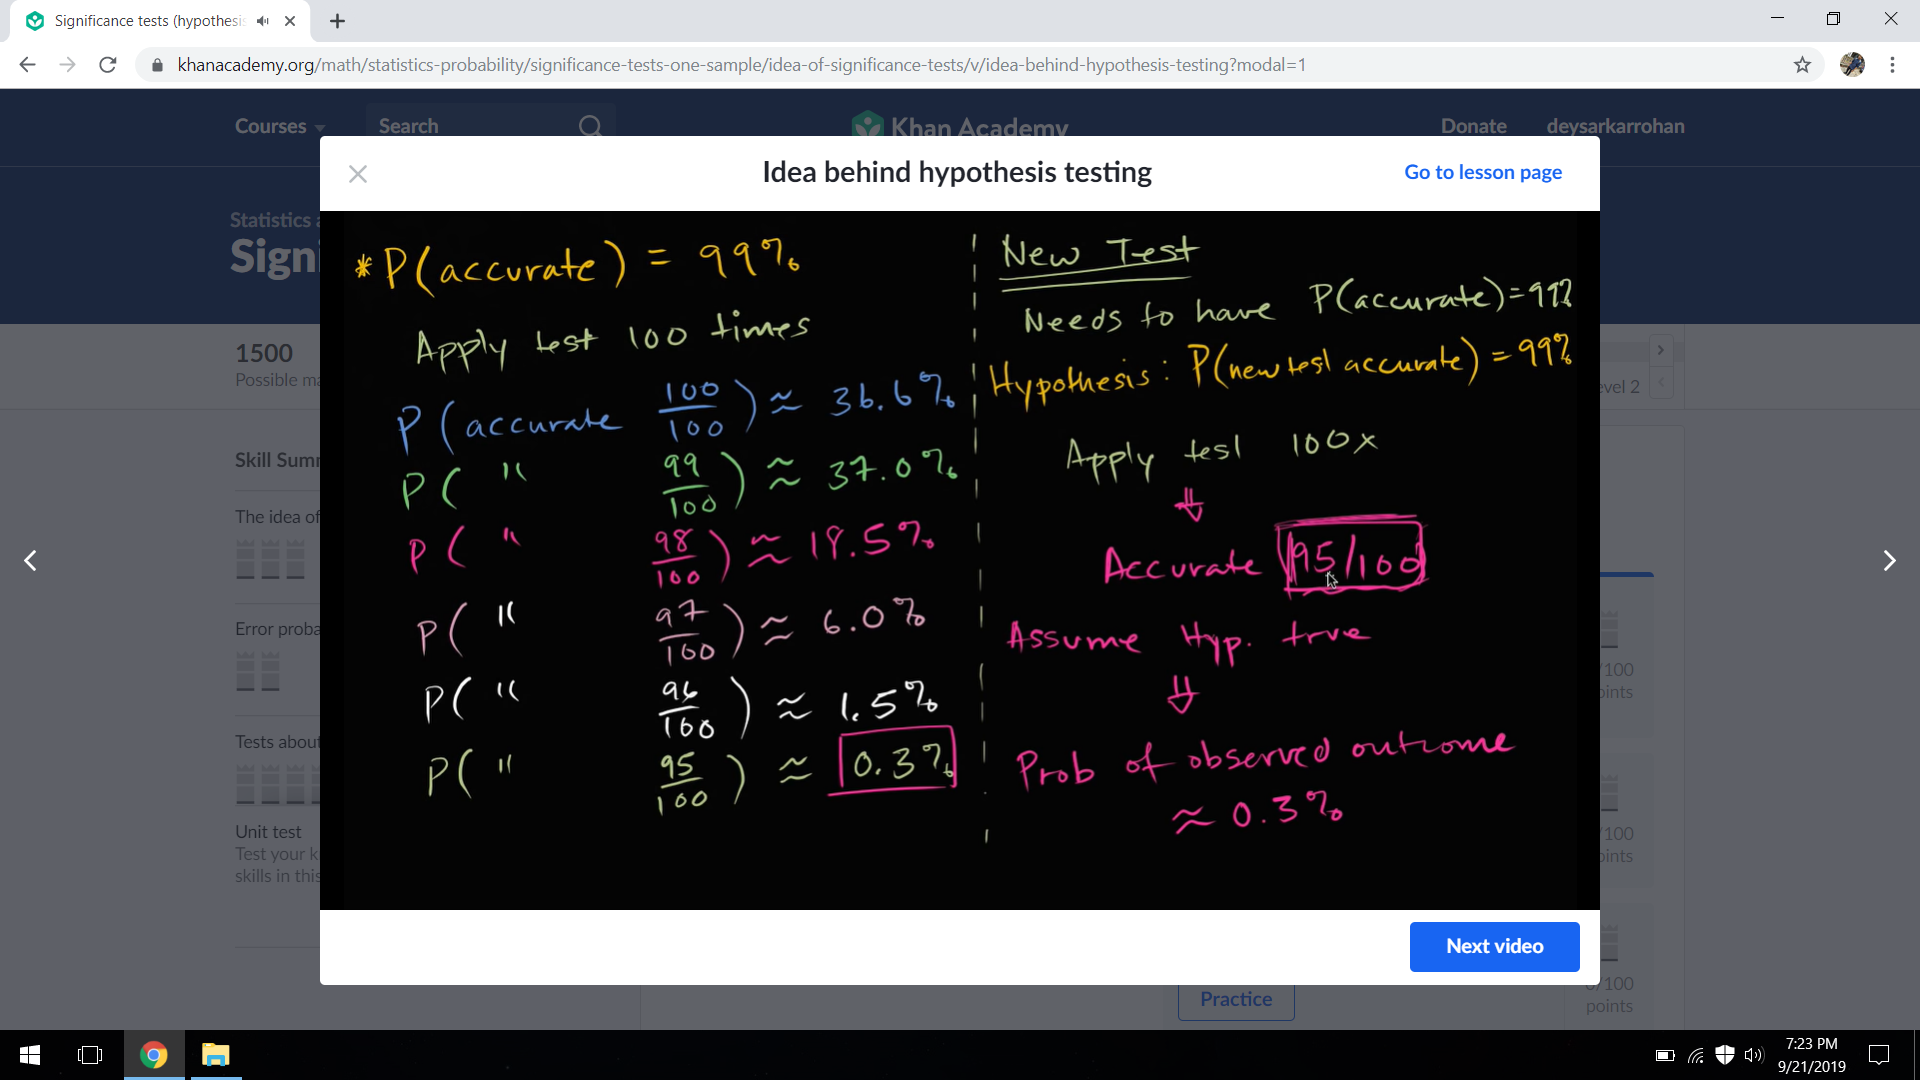 Significance tests (hypothesis
khanacademy.org/math/statistics-probability/significance-tests-one-sample/idea-of-significance-tests/v/idea-behind-hypothesis-testing?modal=1
Courses
Search
Khan Academy
Donate
deysarkarrohan
Idea behind hypothesis testing
Go to lesson page
Statistics a
Signi
1500
Possible ma
evel 2
Skill Summ
The idea of
Error proba
Tests about
Unit test
Test your k
skills in this
* P(accurate) = 99%
Apply test 100 times
P(accurate 100/100) ≈ 36.6%
P( " 99/100) ≈ 37.0%
P( " 98/100) ≈ 18.5%
P( " 97/100) ≈ 6.0%
P( " 96/100) ≈ 1.5%
P( " 95/100) ≈ 0.3%
New Test
Needs to have P(accurate)=99%
Hypothesis: P(new test accurate) = 99%
Apply test 100x
Accurate 95/100
Assume Hyp. true
Prob of observed outcome
≈ 0.3%
/100
oints
/100
oints
Next video
Practice
0/100
points
7:23 PM
9/21/2019